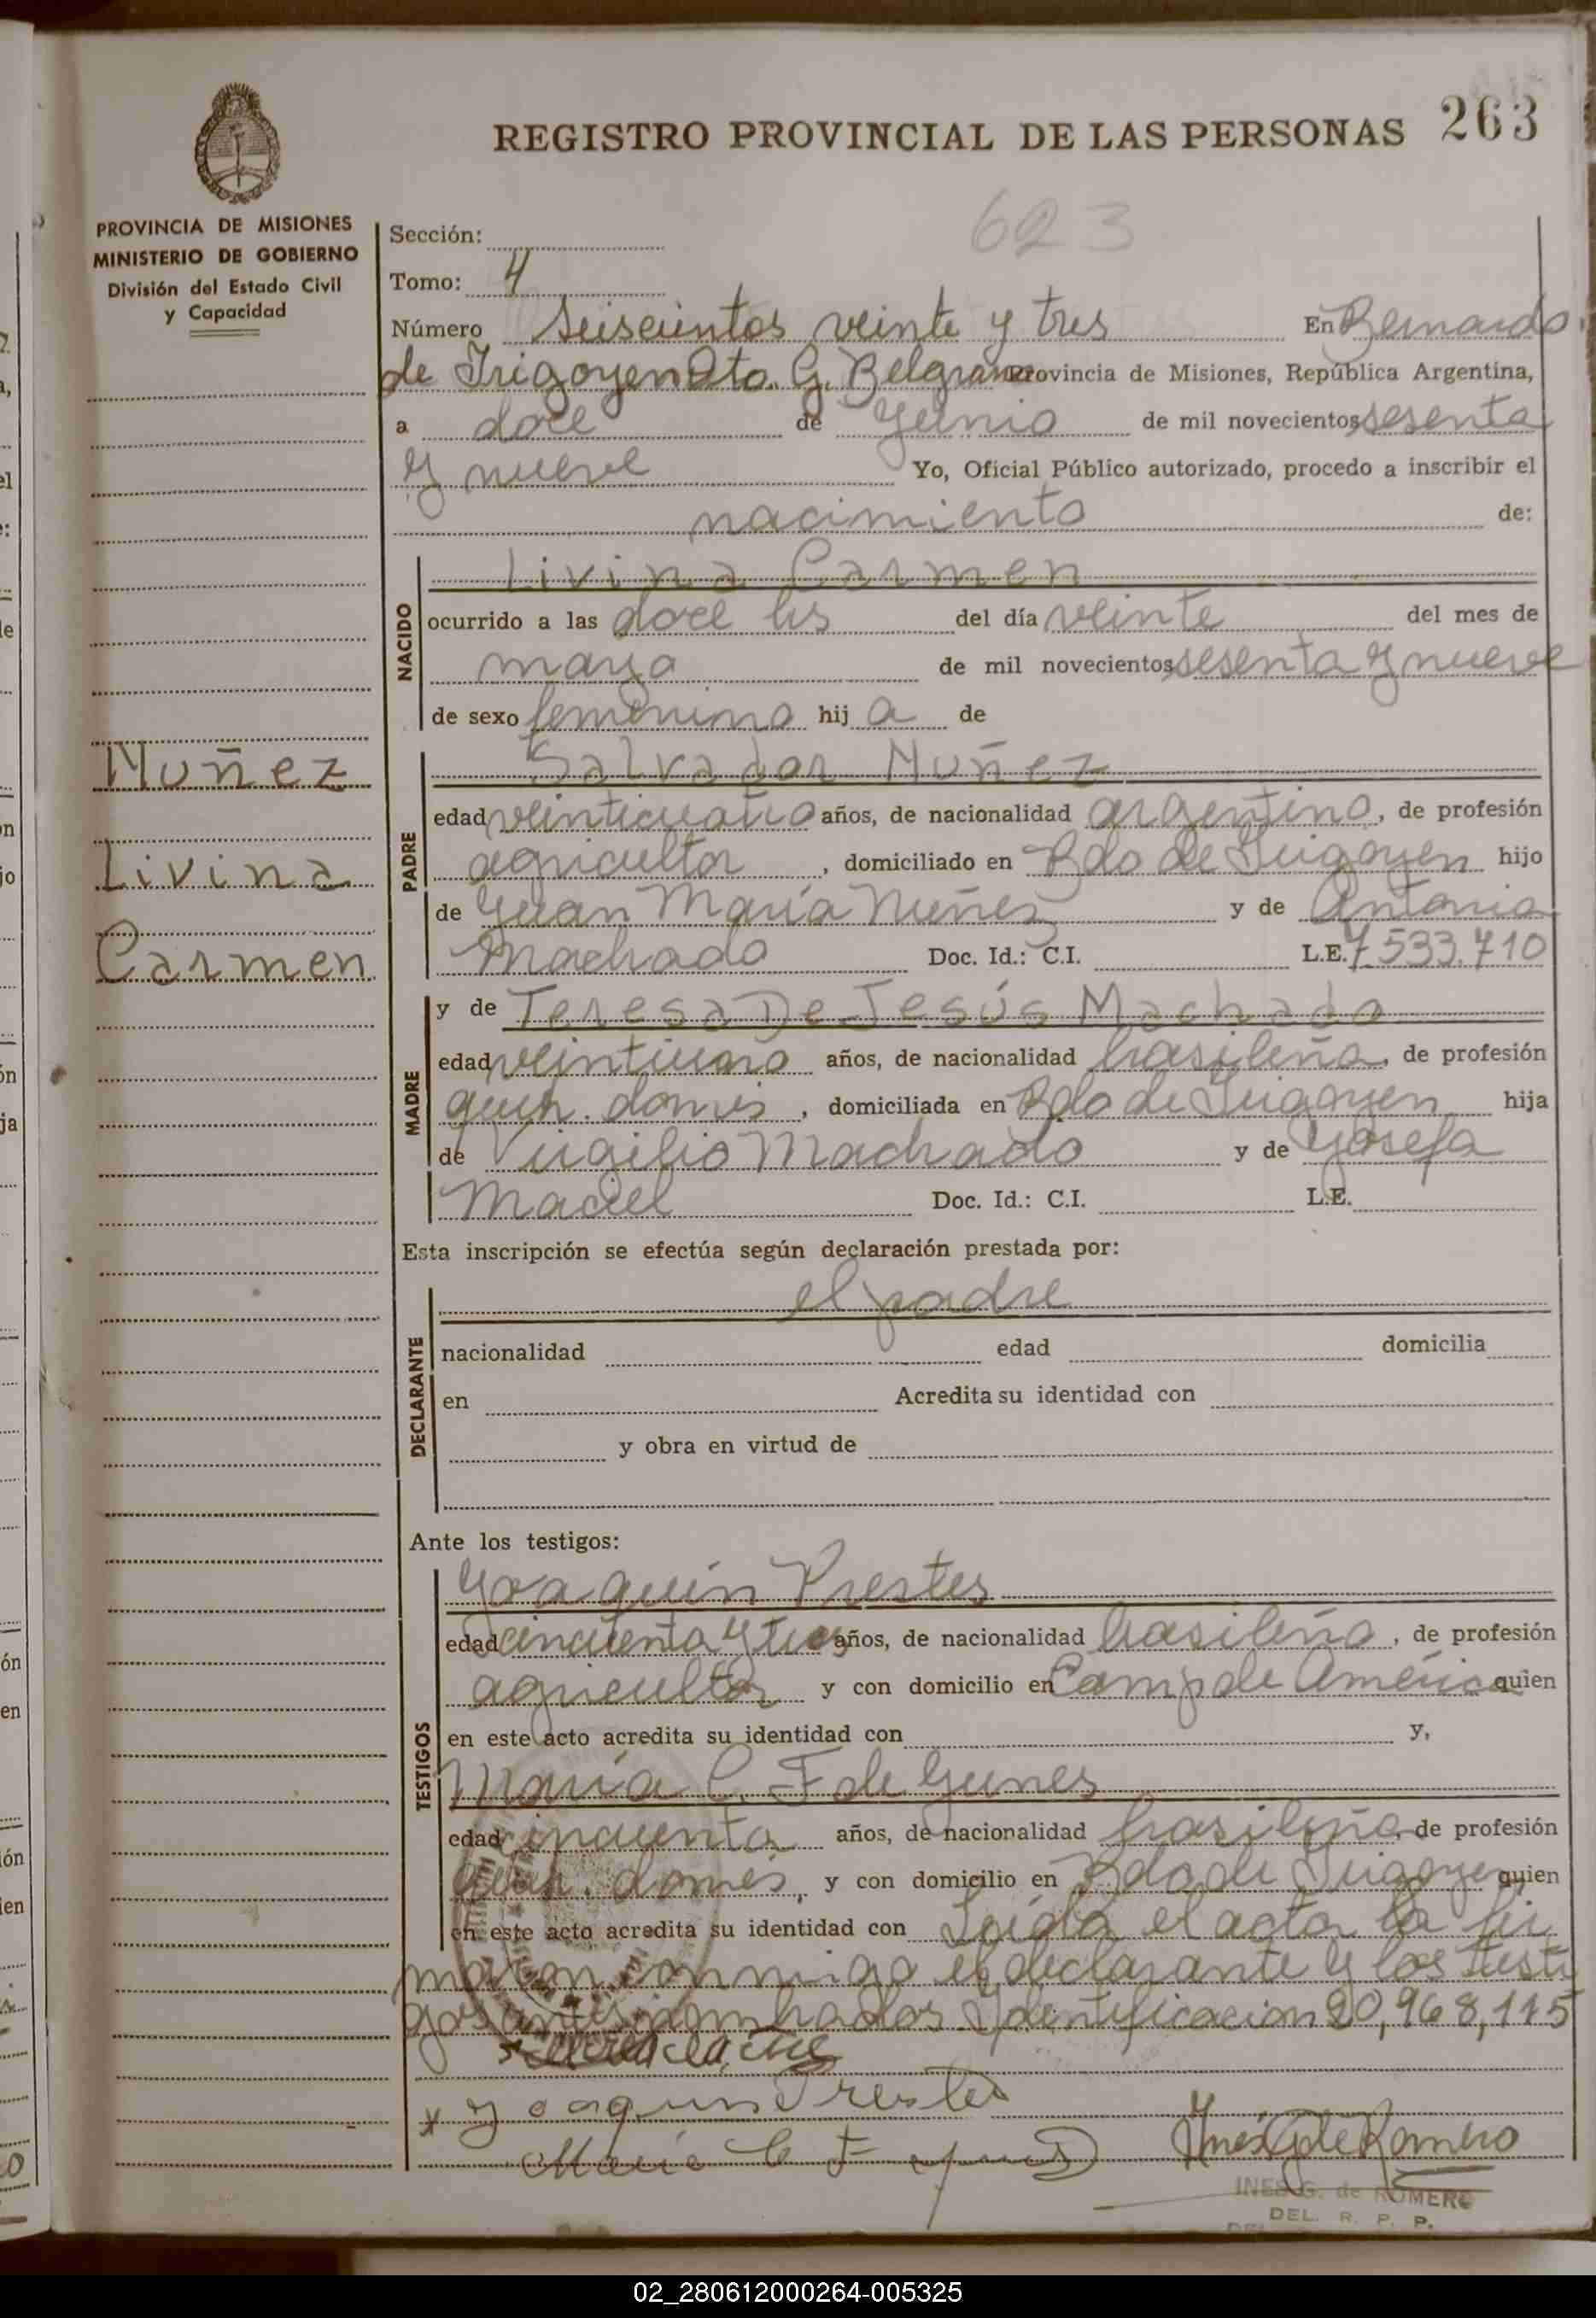 REGISTRO PROVINCIAL DE LAS PERSONAS 263
PROVINCIA DE MISIONES
MINISTERIO DE GOBIERNO
División del Estado Civil
y Capacidad
623
Sección:
Tomo: 4
Número Seiscientos veinte y tres En Bernardo
de Irigoyen Dto. G. Belgrano Provincia de Misiones, República Argentina,
a doce de Junio de mil novecientos sesenta
y nueve Yo, Oficial Público autorizado, procedo a inscribir el
nacimiento de:
NACIDO
Livina Carmen
ocurrido a las doce hs del día veinte del mes de
mayo de mil novecientos sesenta y nueve
de sexo femenino hij a de
Nuñez
Livina
Carmen
PADRE
Salvador Nuñez
edad veinticuatro años, de nacionalidad argentino, de profesión
agricultor, domiciliado en Bdo de Irigoyen hijo
de Juan María Nuñes y de Antonia
Machado Doc. Id.: C.I. L.E. 7.533.710
MADRE
y de Teresa De Jesús Machado
edad años, de nacionalidad brasileña, de profesión
queh. domes, domiciliada en Bdo de Irigoyen hija
de Virgilio Machado y de Josefa
Maciel Doc. Id.: C.I. L.E.
Esta inscripción se efectúa según declaración prestada por:
DECLARANTE
el padre
nacionalidad edad domicilia
en Acredita su identidad con
y obra en virtud de
Ante los testigos:
TESTIGOS
Joaquín Prestes
edad cincuenta y tres años, de nacionalidad brasileño, de profesión
agricultor y con domicilio en Camp de América quien
en este acto acredita su identidad con y,
María C. F de Gunes
edad cincuenta años, de nacionalidad brasileña, de profesión
queh. domés, y con domicilio en Bdo de Irigoyen quien
en este acto acredita su identidad con Leída el acta la fir
maron conmigo el declarante y los testi
gos antes nombrados. Identificacion 20,968,115
x Joaquin Prestes
Maria C F
Inés G de Romero
INES G. de ROMERO
DEL. R. P. P.
02_280612000264-005325